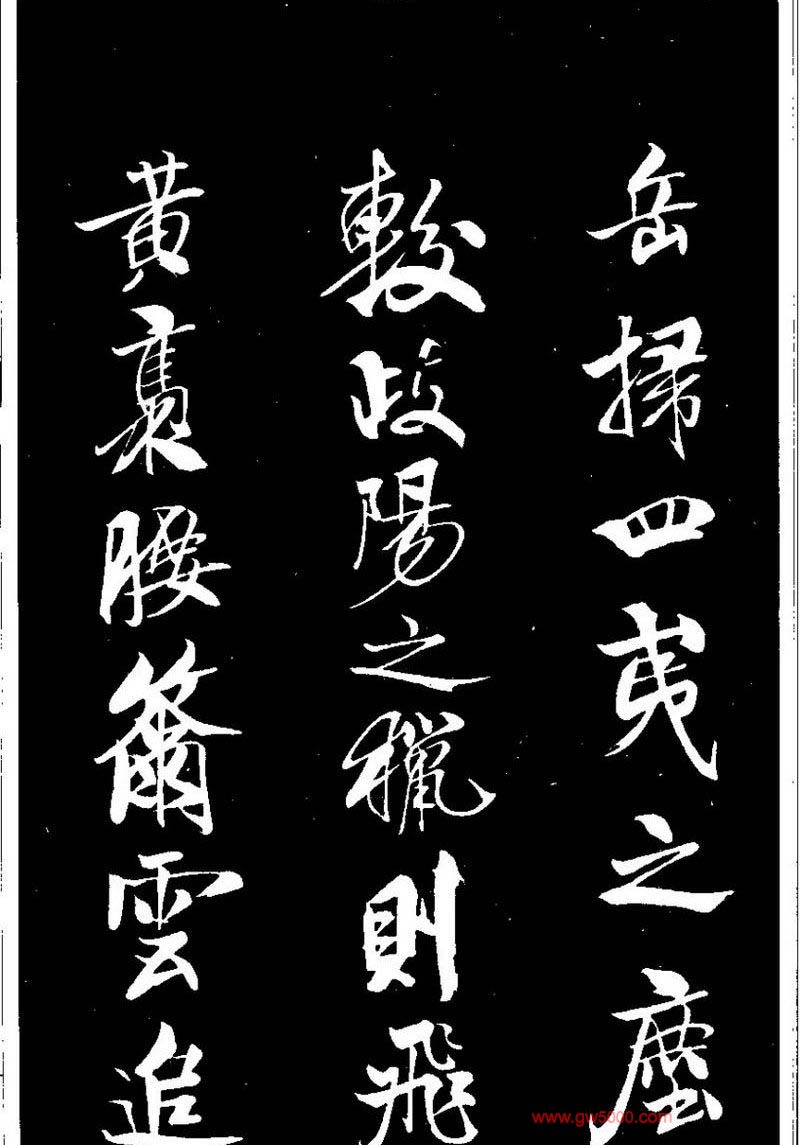 岳掃四夷之塵
較歧陽之獵則飛
黃褭腰籋雲追
www.gw5000.com